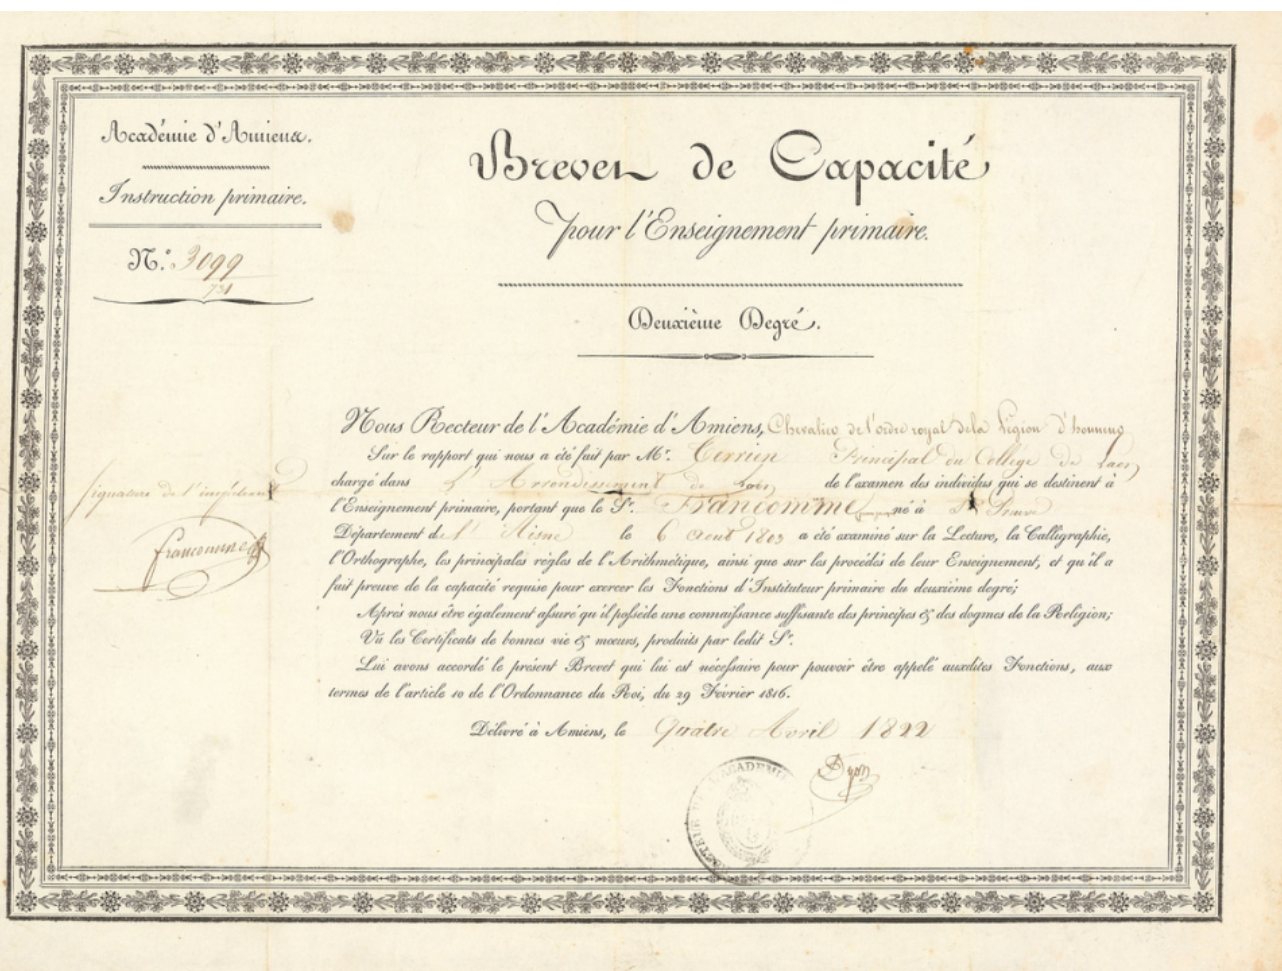 Académie d'Amiens.
Instruction primaire.
N.º 3099
731
Brevet de Capacité
pour l'Enseignement primaire.
Deuxième Degré.
Nous Recteur de l'Académie d'Amiens, Chevalier de l'ordre royal de la Légion d'honneur
Sur le rapport qui nous a été fait par Mr. Principal du Collège de Laon
chargé dans L'Arrondissement de Laon de l'examen des individus qui se destinent à
l'Enseignement primaire, portant que le Sr. Francomme né à
Département de l'Aisne le 6 Aout 1803 a été examiné sur la Lecture, la Calligraphie,
l'Orthographe, les principales règles de l'Arithmétique, ainsi que sur les procédés de leur Enseignement, et qu'il a
fait preuve de la capacité requise pour exercer les Fonctions d'Instituteur primaire du deuxième degré;
Après nous être également assuré qu'il possède une connaissance suffisante des principes & des dogmes de la Religion;
Vû les Certificats de bonnes vie & mœurs, produits par ledit Sr.
Lui avons accordé le présent Brevet qui lui est nécessaire pour pouvoir être appelé auxdites Fonctions, aux
termes de l'article 10 de l'Ordonnance du Roi, du 29 Février 1816.
Délivré à Amiens, le Quatre Avril 1822
Signature de l'impétrant
francomme
L'ACADEMIE